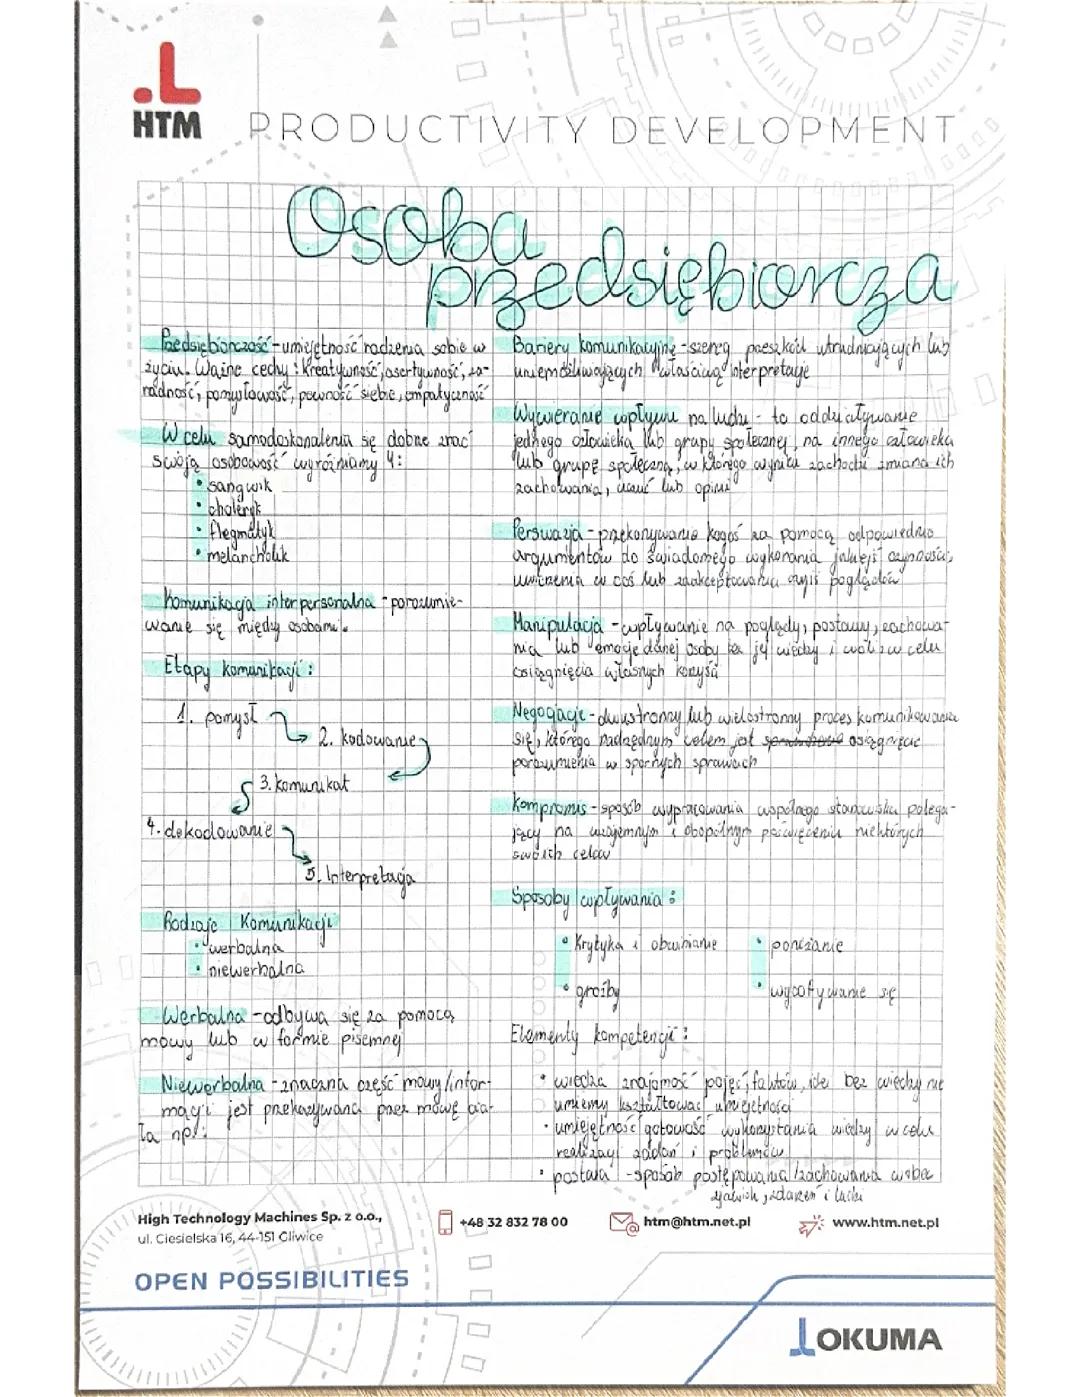 HTM
PRODUCTIVITY DEVELOPMENT
Osoba
przedsiębiorcza
Przedsiębiorczość - umiejętność radzenia sobie w
życiu. Ważne cechy: kreatywność, asertywność, za-
radność, pomysłowość, pewność siebie, empatyczność
W celu samodoskonalenia się dobrze znać
swoją osobowość wyróżniamy 4:
• sangwik
• choleryk
• flegmatyk
• melancholik
Komunikacja interpersonalna - porozumie-
wanie się między osobami.
Etapy komunikacji:
1. pomysł
2. kodowanie
3. komunikat
4. dekodowanie
5. Interpretacja
Rodzaje Komunikacji
• werbalna
• niewerbalna
Werbalna - odbywa się za pomocą
mowy lub w formie pisemnej
Niewerbalna - znaczna część mowy/infor-
macji jest przekazywana przez mowę cia-
ła np.:
Bariery komunikacyjne - szereg przeszkód utrudniających lub
uniemożliwiających właściwą interpretację
Wywieranie wpływu na ludzi - to oddziaływanie
jednego człowieka lub grupy społecznej, na innego człowieka
lub grupę społeczną, w którego wyniku zachodzi zmiana ich
zachowania, uczuć lub opinii
Perswazja - przekonywanie kogoś za pomocą odpowiednio
argumentów do świadomego wykonania jakiejś czynności,
uwierzenia w coś lub zaakceptowania czyiś poglądów
Manipulacja - wpływanie na poglądy, postawy, zachowa-
nia lub emocje danej osoby bez jej wiedzy i woli w celu
osiągnięcia własnych korzyści
Negocjacje - dwustronny lub wielostronny proces komunikowania
się, którego nadrzędnym celem jest osiągnięcie
porozumienia w spornych sprawach
Kompromis - sposób wypracowania wspólnego stanowiska polega-
jący na wzajemnym i obopólnym poświęceniu niektórych
swoich celów
Sposoby wpływania:
• Krytyka i obwinianie
• poniżanie
• groźby
• wycofywanie się
Elementy kompetencji:
• wiedza znajomość pojęć, faktów, idei bez wiedzy nie
umiemy kształtować umiejętności
• umiejętność gotowość wykorzystania wiedzy w celu
realizacji zadań i problemów
• postawa - sposób postępowania/zachowania wobec
zjawisk, zdarzeń i ludzi
High Technology Machines Sp. z o.o.,
ul. Ciesielska 16, 44-151 Gliwice
+48 32 832 78 00
htm@htm.net.pl
www.htm.net.pl
OPEN POSSIBILITIES
OKUMA